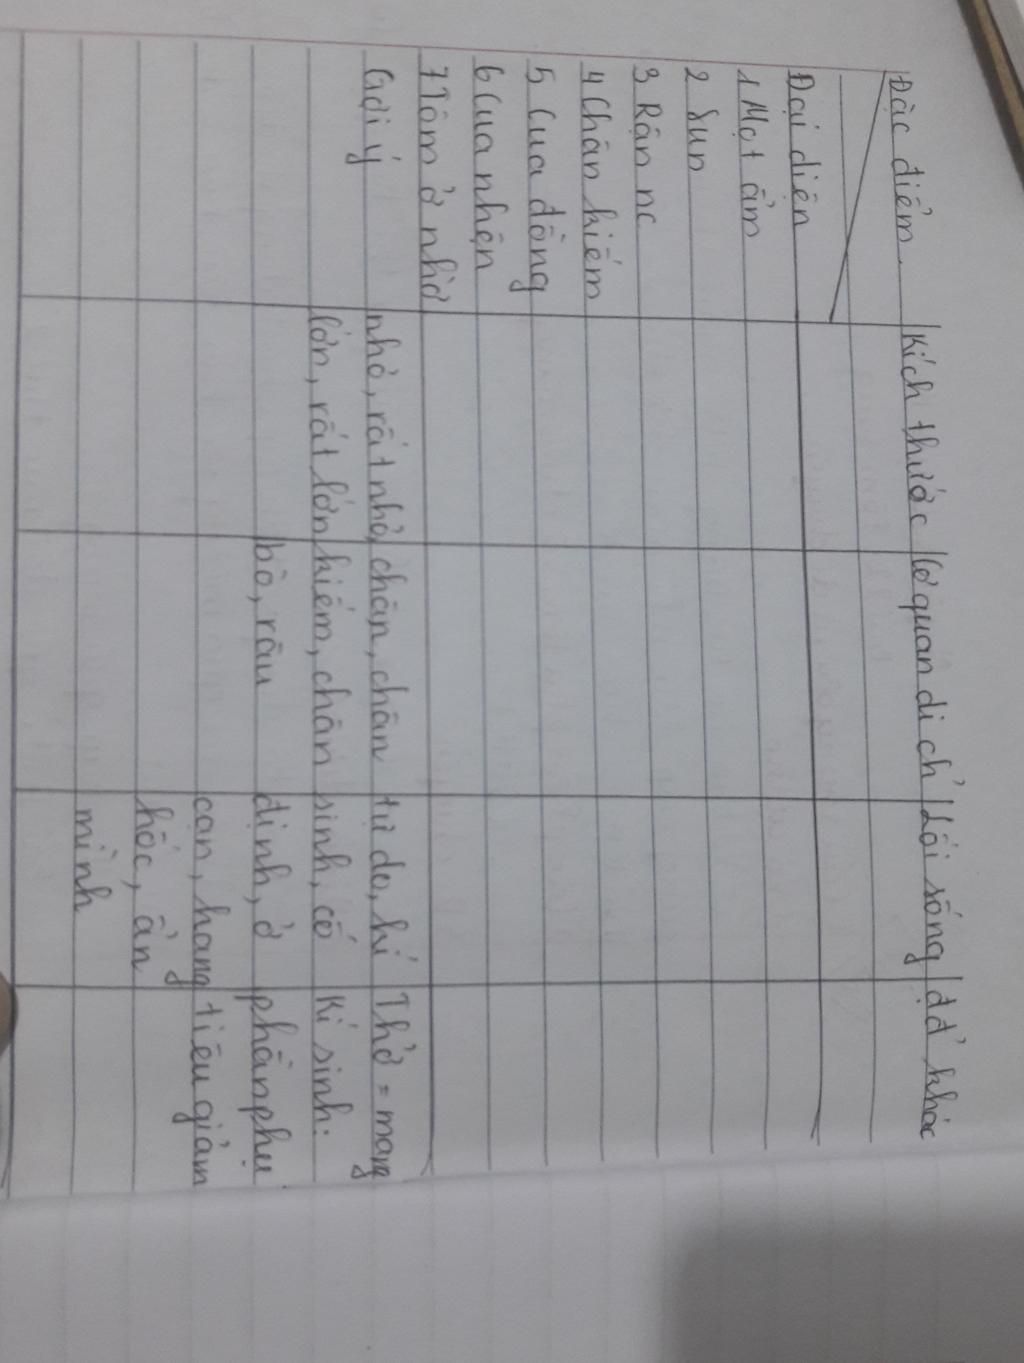 Đặc điểm Kích thước Cơ quan di chỉ Lối sống đđ khác
Đại diện
1 Mọt ẩm
2 Sun
3 Rận nc
4 Chân kiếm
5 Cua đồng
6 Cua nhện
7 Tôm ở nhờ
Gợi ý nhỏ, rất nhỏ, chân, chân tự do, kí Thở = mang
lớn, rất lớn kiếm, chân sinh, cố Kí sinh:
bò, râu định, ở phần phụ
cạn, hang tiêu giảm
hốc, ẩn
mình